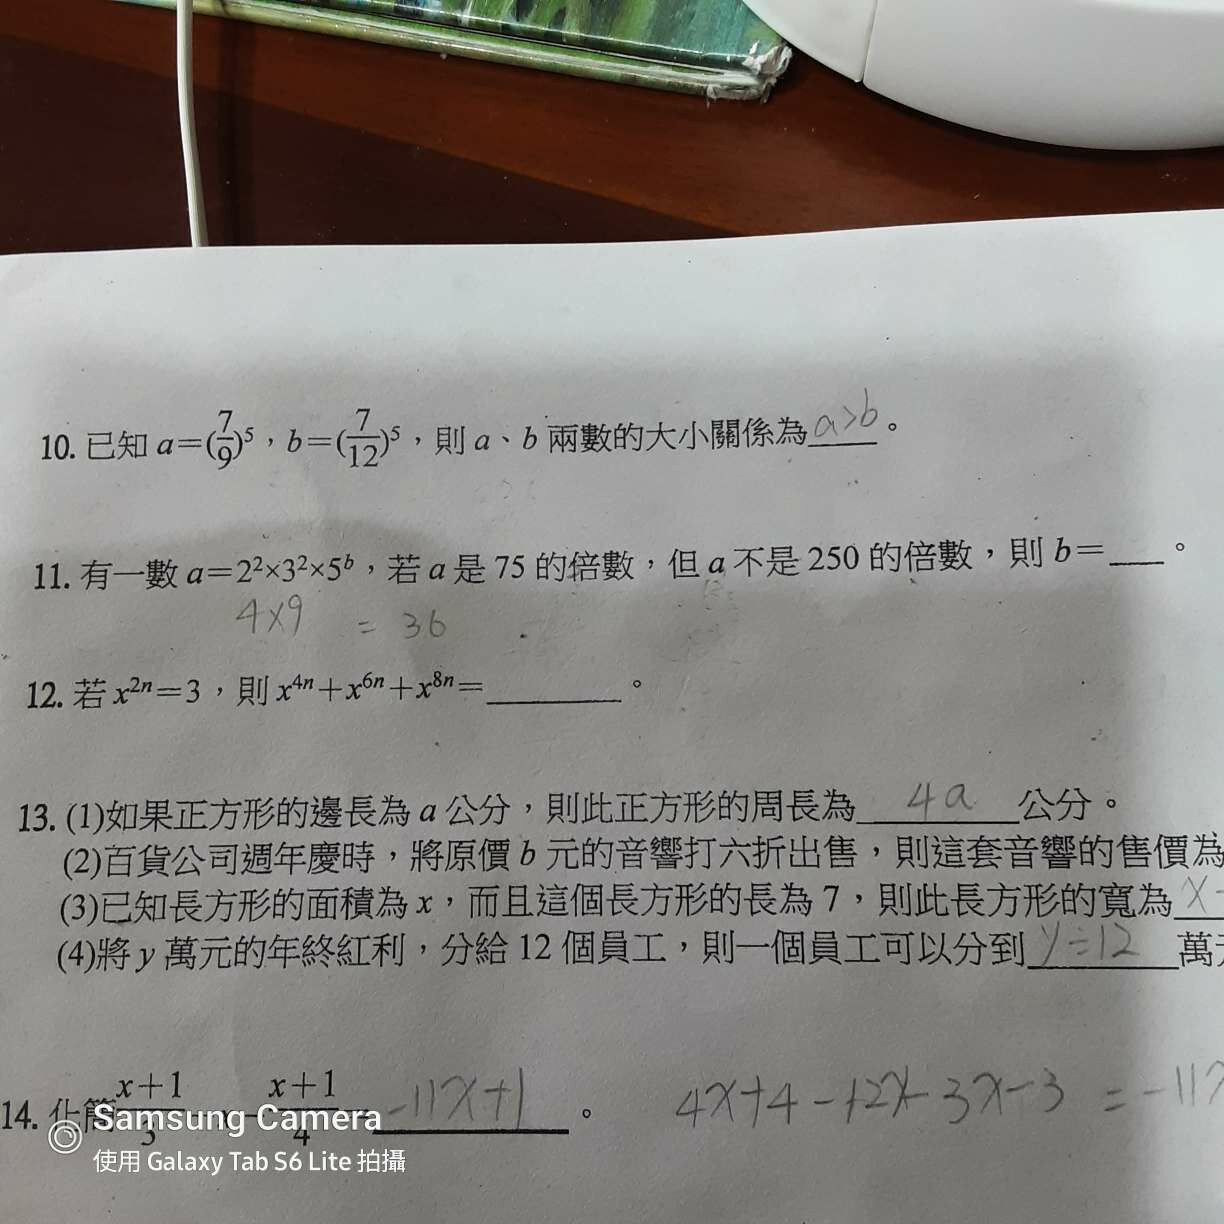 10. 已知 a=(7/9)⁵，b=(7/12)⁵，則 a、b 兩數的大小關係為 a>b 。
11. 有一數 a=2²×3²×5ᵇ，若 a 是 75 的倍數，但 a 不是 250 的倍數，則 b=___。
4×9 = 36
12. 若 x²ⁿ=3，則 x⁴ⁿ+x⁶ⁿ+x⁸ⁿ=______。
13. (1)如果正方形的邊長為 a 公分，則此正方形的周長為 4a 公分。
(2)百貨公司週年慶時，將原價 b 元的音響打六折出售，則這套音響的售價為
(3)已知長方形的面積為 x，而且這個長方形的長為 7，則此長方形的寬為 x
(4)將 y 萬元的年終紅利，分給 12 個員工，則一個員工可以分到 y÷12 萬
14. 化簡 (x+1)/3 - x - (x+1)/4 = -11x+1 。 4x+4-12x-3x-3 = -11x
Samsung Camera
使用 Galaxy Tab S6 Lite 拍攝